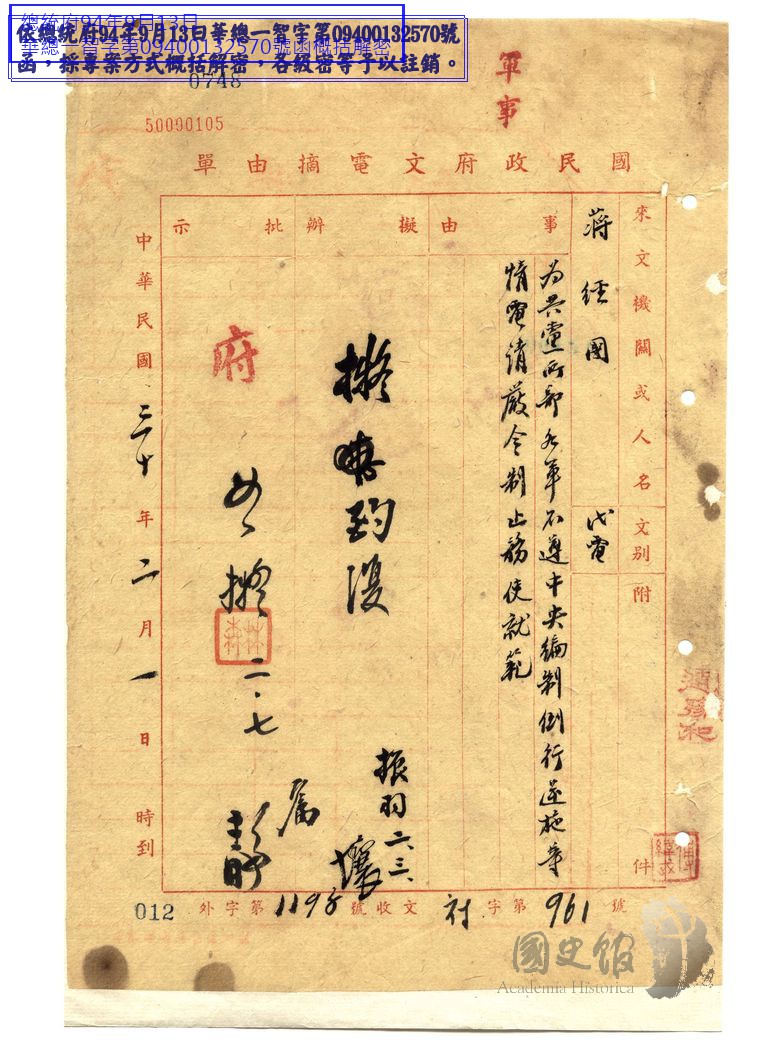 總統府94年9月13日
華總一智字第09400132570號函概括解密
依總統府94年9月13日華總一智字第09400132570號
函，採專案方式概括解密，各級密等予以註銷。
0748
軍事
50090105
國民政府文電摘由單
來文機關或人名
文別
附件
蔣經國
代電
事由
為共黨所部各軍不遵中央編制倒行逆施等
情電請嚴令制止務使就範
擬辦
振羽 二、三、
批示
府
如擬
二、七
中華民國三十年二月一日時到
號
961
第字
文收
號
1198
第字外
012
國史館
Academia Historica